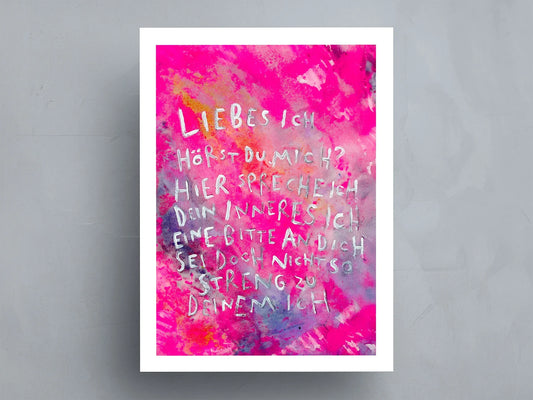 LIEBES ICH
HÖRST DU MICH?
HIER SPRECHE ICH
DEIN INNERES ICH
EINE BITTE AN DICH
SEI DOCH NICHT SO
STRENG ZU
DEINEM ICH